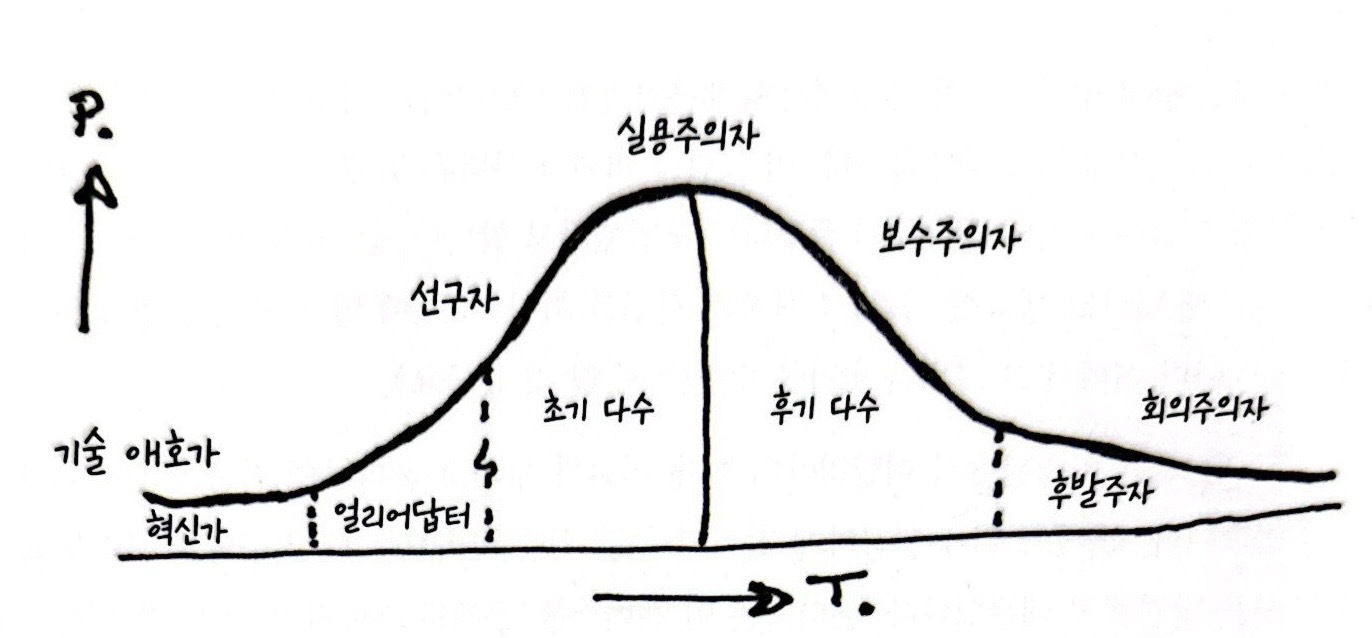 P.
실용주의자
보수주의자
선구자
초기 다수
후기 다수
회의주의자
기술 애호가
후발주자
얼리어답터
혁신가
T.